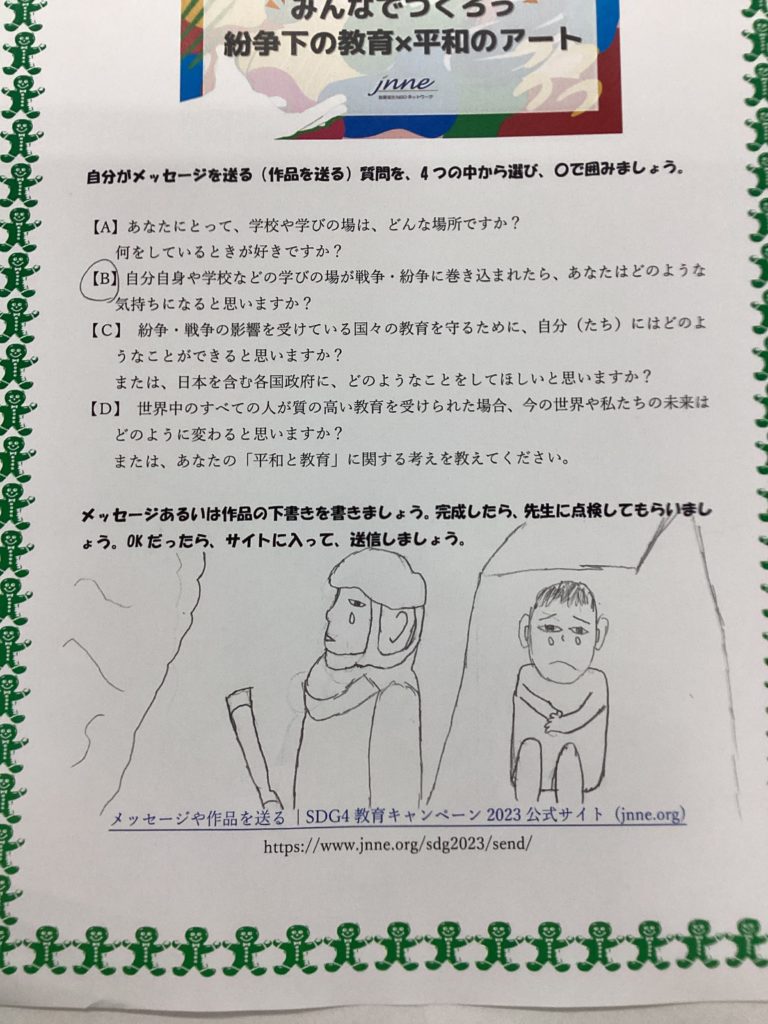 みんなでつくろう
紛争下の教育×平和のアート
jnne
自分がメッセージを送る（作品を送る）質問を、4つの中から選び、〇で囲みましょう。
【A】あなたにとって、学校や学びの場は、どんな場所ですか？
何をしているときが好きですか？
【B】自分自身や学校などの学びの場が戦争・紛争に巻き込まれたら、あなたはどのような
気持ちになると思いますか？
【C】 紛争・戦争の影響を受けている国々の教育を守るために、自分（たち）にはどのよ
うなことができると思いますか？
または、日本を含む各国政府に、どのようなことをしてほしいと思いますか？
【D】 世界中のすべての人が質の高い教育を受けられた場合、今の世界や私たちの未来は
どのように変わると思いますか？
または、あなたの「平和と教育」に関する考えを教えてください。
メッセージあるいは作品の下書きを書きましょう。完成したら、先生に点検してもらいまし
ょう。OKだったら、サイトに入って、送信しましょう。
メッセージや作品を送る ｜SDG4 教育キャンペーン 2023 公式サイト（jnne.org）
https://www.jnne.org/sdg2023/send/